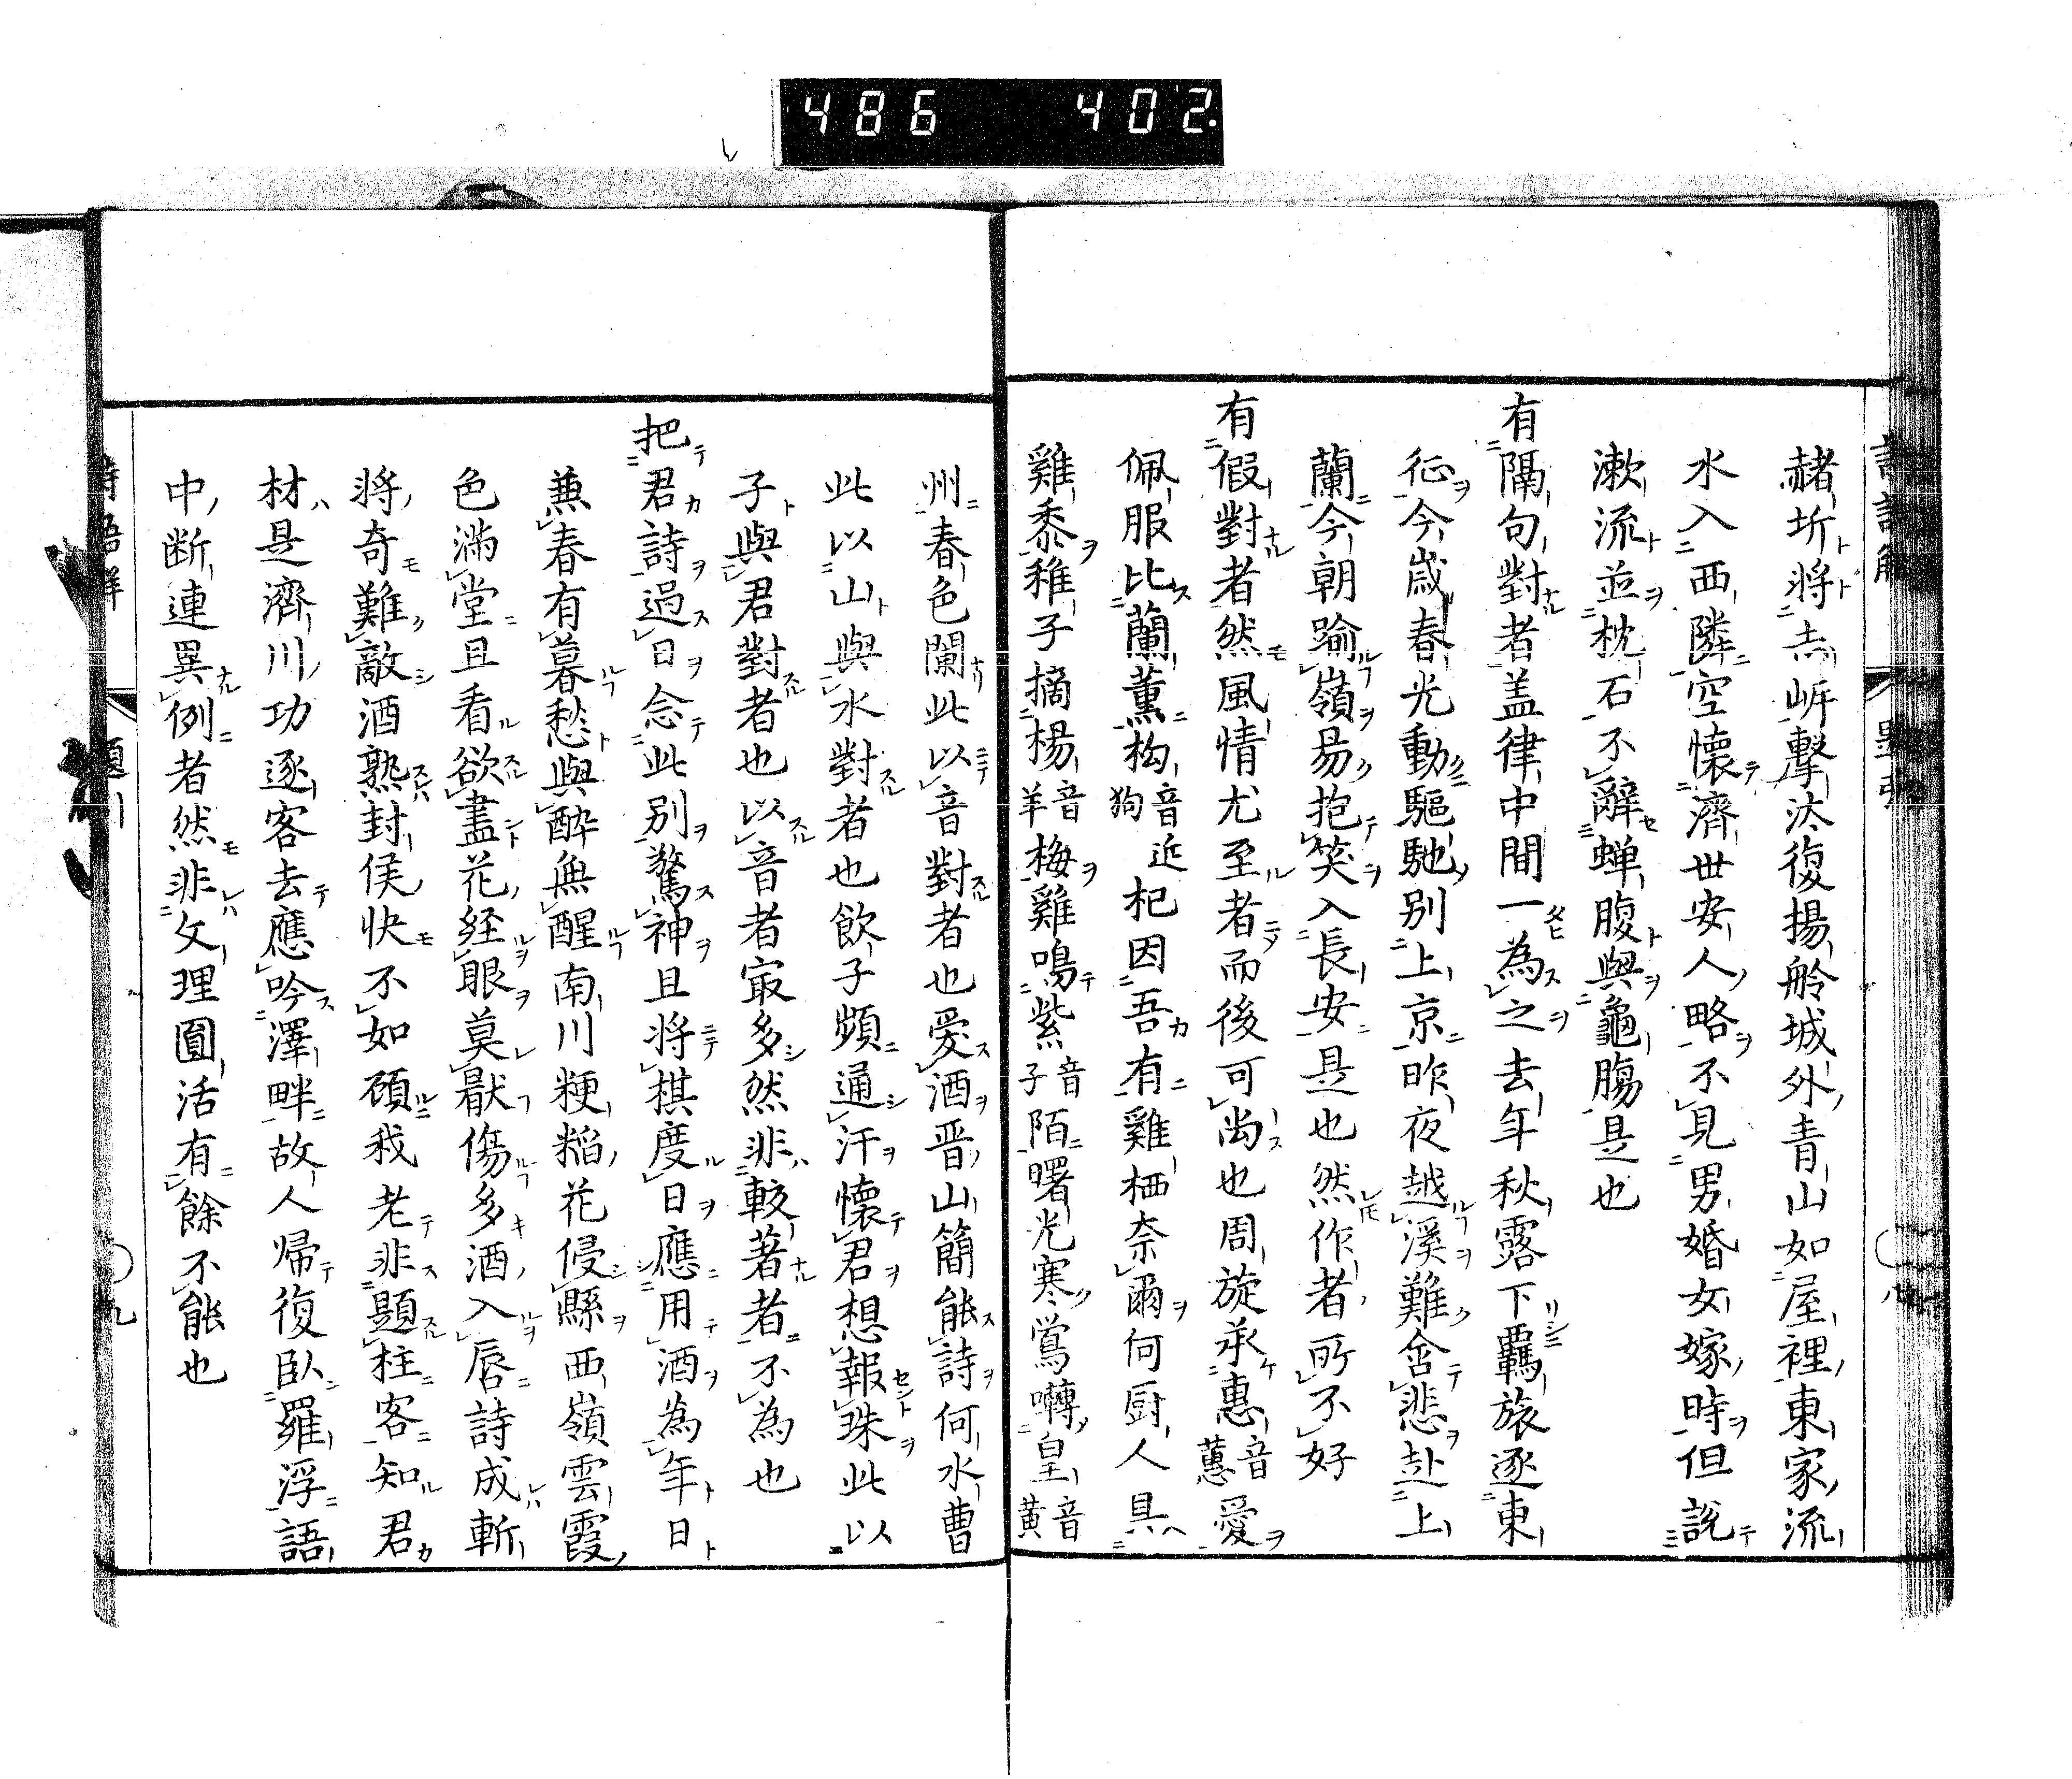 486 402.
赭圻將赤岍擊汰復揚舲城外青山如屋裡東家流
水入西隣空懐濟世安人略不見男婚女嫁時但説
漱流並枕石不辭蝉腹與龜腸是也
有隔句對者盖律中間一為之去年秋露下羈旅逐東
征今歳春光動驅馳別上京昨夜越溪難舎悲赴上
蘭今朝踰嶺易抱笑入長安是也然作者所不好
有假對者然風情尤至者而後可尚也周旋承惠音蕙愛
佩服比蘭薫構音近狗杞因吾有雞栖奈爾何厨人具
雞黍稚子摘楊音羊梅雞鳴紫音子陌曙光寒鶯囀皇音黄
州春色闌此以音對者也愛酒晋山簡能詩何水曹
此以山與水對者也飲子頻通汗懐君想報珠此以
子與君對者也以音者㝡多然非較著者不為也
把君詩過日念此別驚神且將棋度日應用酒為年日
兼春有暮愁與酔無醒南川粳稲花侵縣西嶺雲霞
色滿堂且看欲盡花経眼莫厭傷多酒入唇詩成斬
將奇難敵酒熟封侯快不如碩我老非題柱客知君
材是濟川功逐客去應吟澤畔故人帰復臥羅浮語
中断連異例者然非文理圓活有餘不能也
詩語解
題引
九